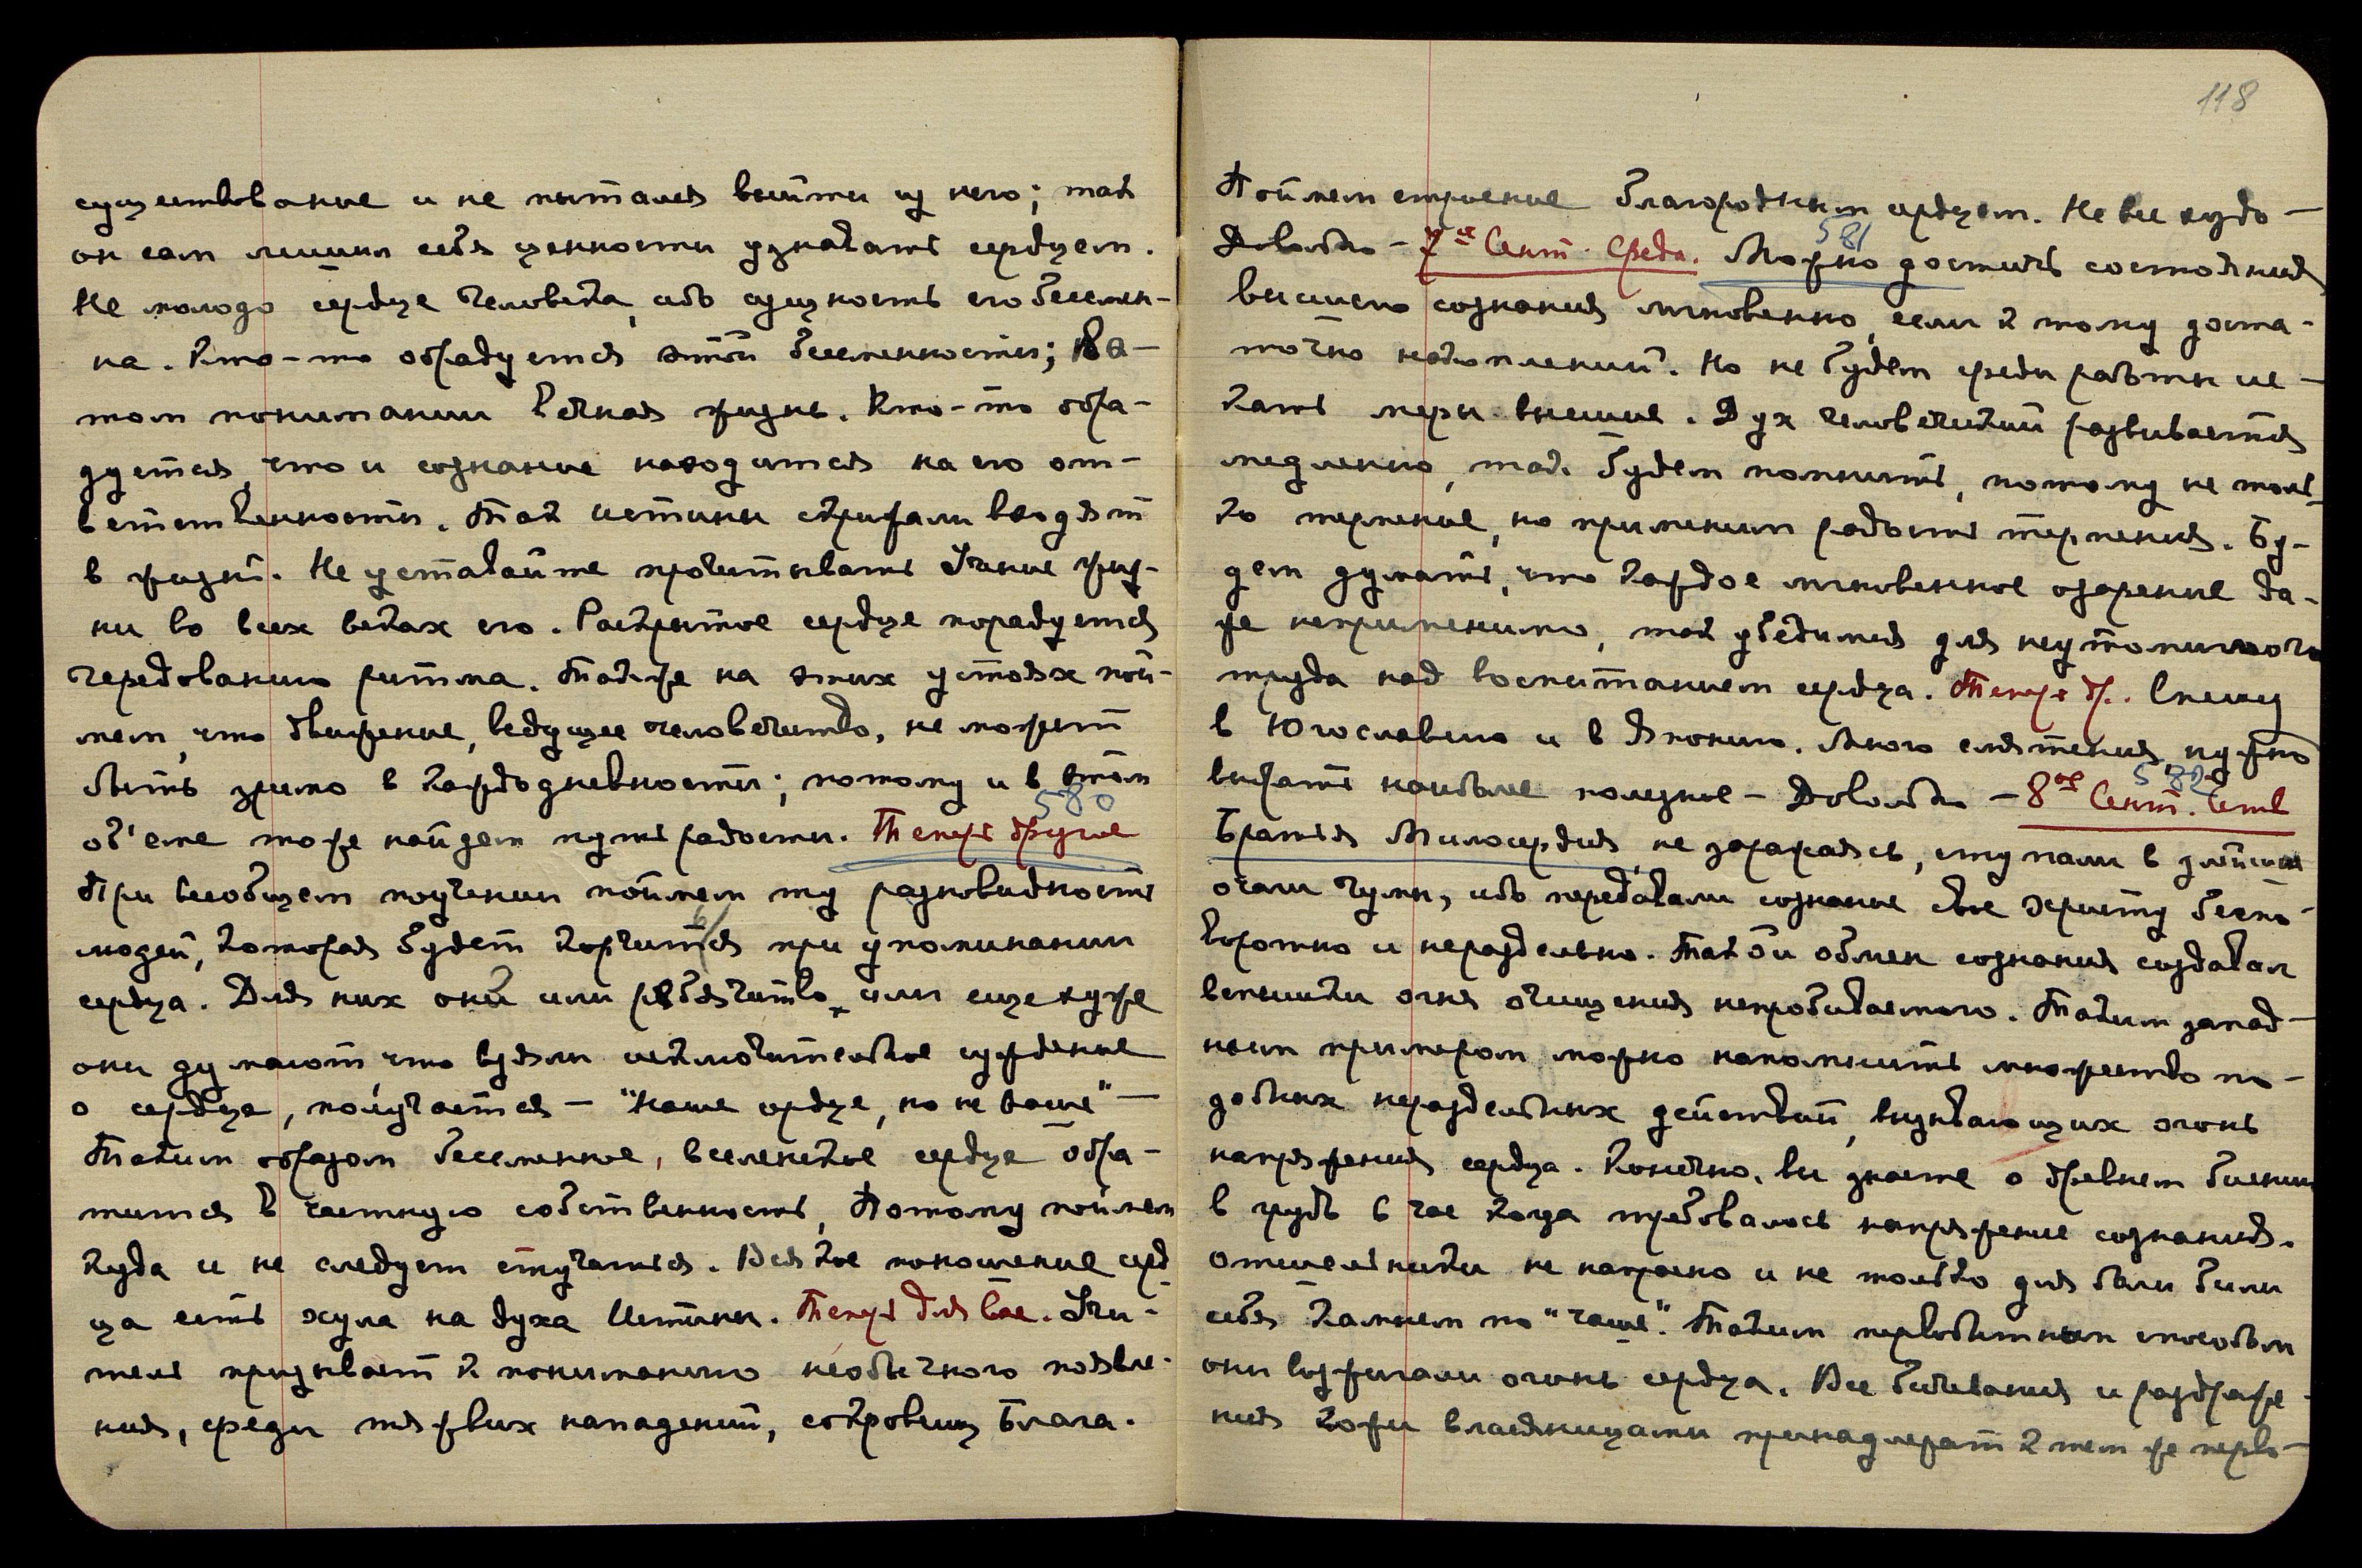 существование и не пытался выйти из него; так
он сам лишил себя ценности узнавать сердцем.
Не молодо сердце человека, ибо сущность его бессмен-
на. Кто-то обрадуется этой бессменности; в
том понимании Вечная жизнь. Кто-то обра-
дуется, что и сознание находится на его от-
ветственности. Так истины скрижали входят
в жизнь. Не уставайте прочитывать Учение Жиз-
ни во всех веках его. Раскрытое сердце порадуется
чередованию ритма. Также на этих устоях пой-
мем, что движение, ведущее человечество, не может
быть зримо в каждодневности; потому и в этом
об'еме тоже найдем путь радости. Теперь другое
580
При всеобщем поучении поймем ту разновидность
людей, которая будет корчиться при упоминании
сердца. Для них оно или ребячество, или еще хуже
они думают, что взяли исключительное суждение
о сердце, получается — "наше сердце, но не ваше" —
Таким образом бессменное, вселенское сердце обра-
тится в частную собственность, Потому поймем
куда и не следует стучаться. Всякое поношение серд
ца есть хула на духа Истины. Теперь для вас. Учи-
тель призывает к пониманию необычного появле-
ния, среди тяжких нападений, сокровищ Блага.
118
Поймем строение благородным сердцем. Не все худо —
Довольно — 7ое Сент. Среда. Можно достичь состояния
581
высшего сознания мгновенно, если к тому доста-
точно накоплений. Но не будем среди работы ис-
кать меры внешние. Дух человеческий развивается
медленно, так будем помнить, потому не толь-
ко терпение, но применим радость терпения. Бу-
дем думать, что каждое мгновенное озарение да-
же неприменимо, так убедимся для неутомимого
труда над воспитанием сердца. Теперь др. Спешу
в Югославию и в Японию. Много смятения, нужно
выбрать наиболее полезное — Довольно — 8ое Сент. Четв
582
Братья Милосердия, не заражаясь, ступали в злейшие
очаги чумы, ибо передавали сознание свое Христу беспо-
воротно и нераздельно. Такой обмен сознания создавал
вспышки огня очищения непробиваемого. Таким запад-
ным примером можно напомнить множество по-
добных нераздельных действий, вызывающих огонь
напряжения сердца. Конечно, вы знаете о древнем биении
в грудь в час когда требовалось напряжение сознания.
Отшельники не напрасно и не только для боли били
себя камнем по "чаше". Таким первобытным способом
они возжигали огонь сердца. Все бичевания и раздраже-
ния кожи власяницами принадлежат к тем же перво-